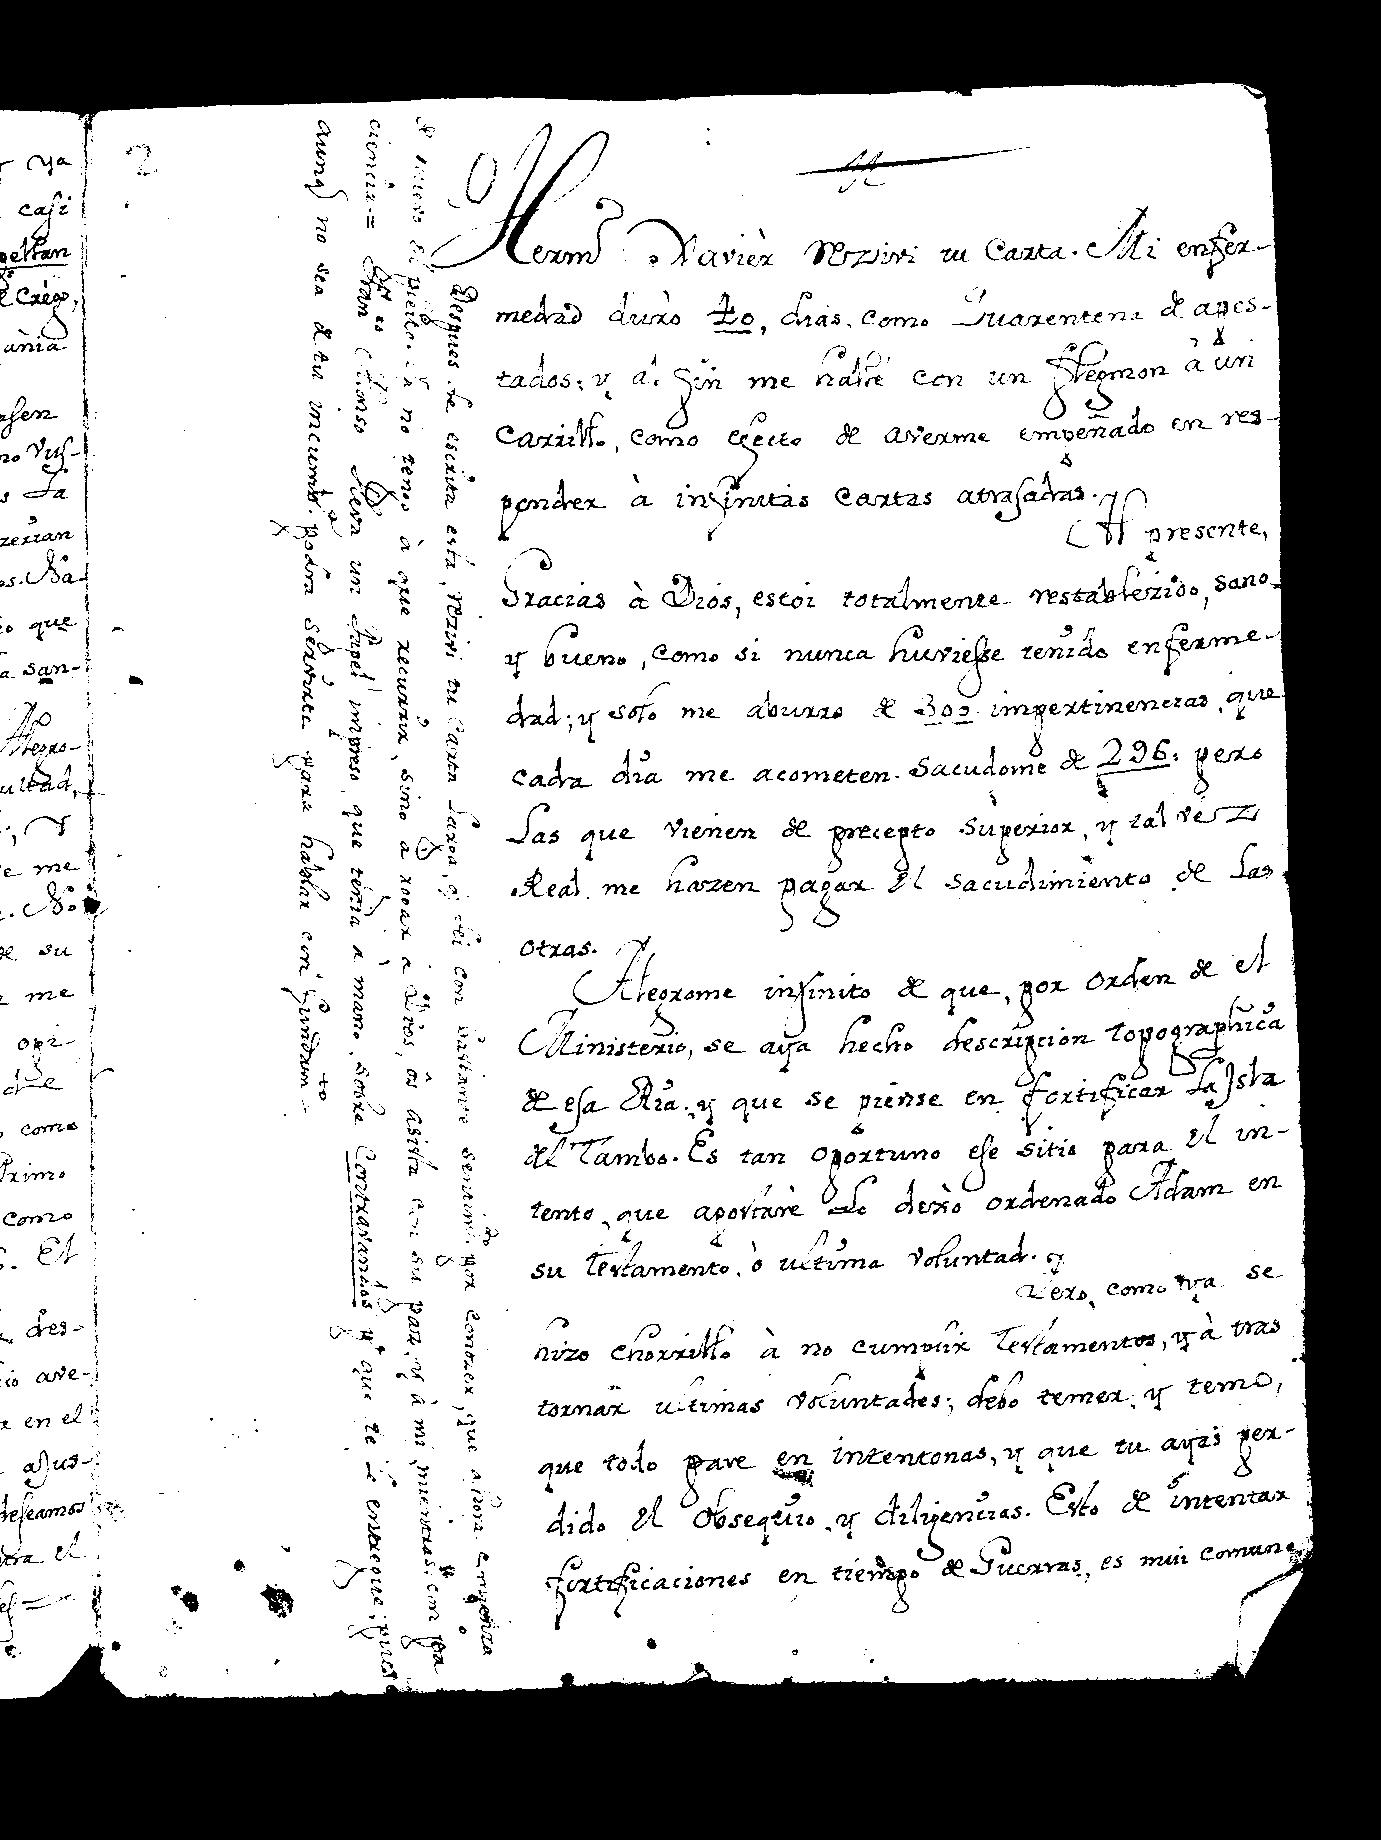 2
Hermo Xavièr Rezivi tu Carta. Mi enfer-
medad durò 40, dias, como Quarentena de apes-
tados; y al fin me hallé con un flegmon â un
Carrillo, como efecto de averme empeñado en res-
ponder à infinitas Cartas atrasadas.
Al presente,
Gracias à Dios, estoi totalmente restablezido, sano
y bueno, como si nunca huviesse tenido enferme-
dad; y solo me aburro de 300 impertinencias, que
cada dia me acometen. Sacudome de 296: pero
las que vienen de precepto Superior, y tal vez
Real me hazen pagar el sacudimiento de las
otras.
Alegrome infinito de que, por orden de el
Ministerio, se aya hecho descripcion topographica
de esa Ria, y que se piense en fortificar la Isla
del Tambo. Es tan oportuno ese sitio para el in-
tento, que apostarè lo dexò ordenado Adam en
su Testamento, ò ultima voluntad.
Pero, como ya se
hizo chorrillo à no cumplir Testamentos, y à tras
tornar ultimas voluntades; debo temer, y temo,
que todo pare en intentonas, y que tu ayas per-
dido el obsequio, y diligencias. Esto de intentar
fortificaciones en tiempo de Guerras, es mui comun
Despues de escrita esta, rezivi tu Carta larga, q lei con bastante sentimto por conozer, que ahora empieza
de nuevo el pleito. Ya no tengo à que recurrir, sino a rogar à Dios, os asista con su paz, y à mi, mientras, con pa
ciencia = Fran Alonso lleva un Papel impreso, que tenia a mano, sobre Contravandos pa que te le entregue; pues
aunq no sea de tu incumba podra servirte para hablar con fundamto
ya
casi
Crego,
ania
asen
no Vis-
s La
zerian
os. Na-
io que
a san-
Alegro-
ultad,
y
e me
No
de su
me
opi-
que
como
Primo
como
El
des-
io ave-
r en el
ajus-
deseamos
tra el